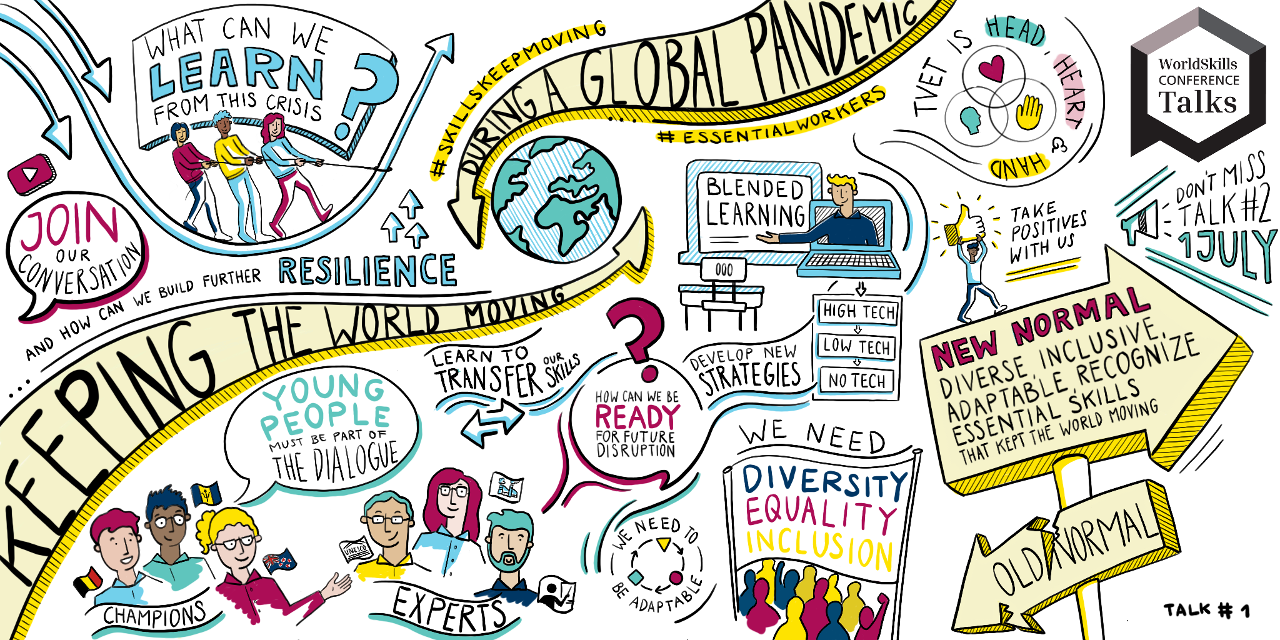 WHAT CAN WE
LEARN
FROM THIS CRISIS
?
JOIN
OUR
CONVERSATION
AND HOW CAN WE BUILD FURTHER RESILIENCE
KEEPING THE WORLD MOVING
DURING A GLOBAL PANDEMIC
#SKILLSKEEPMOVING
#ESSENTIALWORKERS
TVET IS HEAD
HEART
& HAND
WorldSkills
CONFERENCE
Talks
DON'T MISS
TALK #2
1 JULY
BLENDED
LEARNING
HIGH TECH
LOW TECH
NO TECH
TAKE
POSITIVES
WITH US
NEW NORMAL
DIVERSE INCLUSIVE,
ADAPTABLE, RECOGNIZE
ESSENTIAL SKILLS
THAT KEPT THE WORLD MOVING
OLD NORMAL
LEARN TO
TRANSFER OUR SKILLS
?
HOW CAN WE BE
READY
FOR FUTURE
DISRUPTION
DEVELOP NEW
STRATEGIES
YOUNG
PEOPLE
MUST BE PART OF
THE DIALOGUE
CHAMPIONS
UNESCO
EXPERTS
WE NEED TO
BE ADAPTABLE
WE NEED
DIVERSITY
EQUALITY
INCLUSION
TALK #1